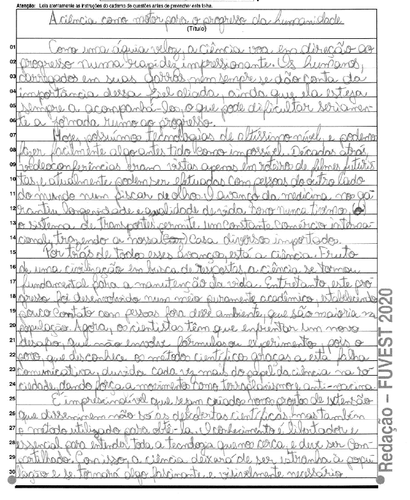 Atenção: Leia atentamente as instruções do caderno de questões antes de preencher esta folha.
A ciência como motor para o progresso da humanidade
(Título)
01 Como uma águia veloz, a ciência voa em direção ao
02 progresso numa rapidez impressionante. Os humanos,
03 abrigados em suas garras nem sempre se dão conta da
04 importância dessa fiel aliada, ainda que ela esteja
05 sempre a acompanhá-los, o que pode dificultar seriamen-
06 te a jornada rumo ao progresso.
07 Hoje, possuímos tecnologias de altíssimo nível, e podemos
08 fazer facilmente algo antes tido como impossível. Décadas atrás,
09 videoconferências eram vistas apenas em roteiro de filmes futuris-
10 tas, e atualmente podem ser efetuadas com pessoas do outro lado
11 do mundo num piscar de olhos. O avanço da medicina nos ga-
12 rantiu longevidade e qualidade de vida como nunca tivemos e
13 o sistema de transportes permite um constante comércio interna-
14 cional, trazendo as nossas casas diversos importados.
15 Por trás de todos esses avanços, está a ciência. Fruto
16 de uma civilização em busca de respostas, a ciência se tornou
17 fundamental para a manutenção da vida. Entretanto, este pro-
18 gresso foi desenvolvido num meio puramente acadêmico, estabelecendo
19 pouco contato com pessoas fora deste ambiente, que são maioria na
20 população. Agora, os cientistas têm que enfrentar um novo
21 desafio, que não envolve fórmulas ou experimentos, pois o
22 povo, que desconhece os métodos científicos graças a esta falha
23 comunicativa, duvida cada vez mais do papel da ciência na so-
24 ciedade, dando força a movimentos como terraplanismo e anti-vacina.
25 É imprescindível que sejam criados mais projetos de extensão
26 que disseminem não só as descobertas científicas mas também
27 o método utilizado para obtê-las. O conhecimento é libertador e
28 essencial para entender toda a tecnologia que nos cerca, e deve ser com-
29 partilhado. Com isso, a ciência deixará de ser estranha à popu-
30 lação e se tornará algo fascinante e visivelmente necessário.
Redação – FUVEST 2020